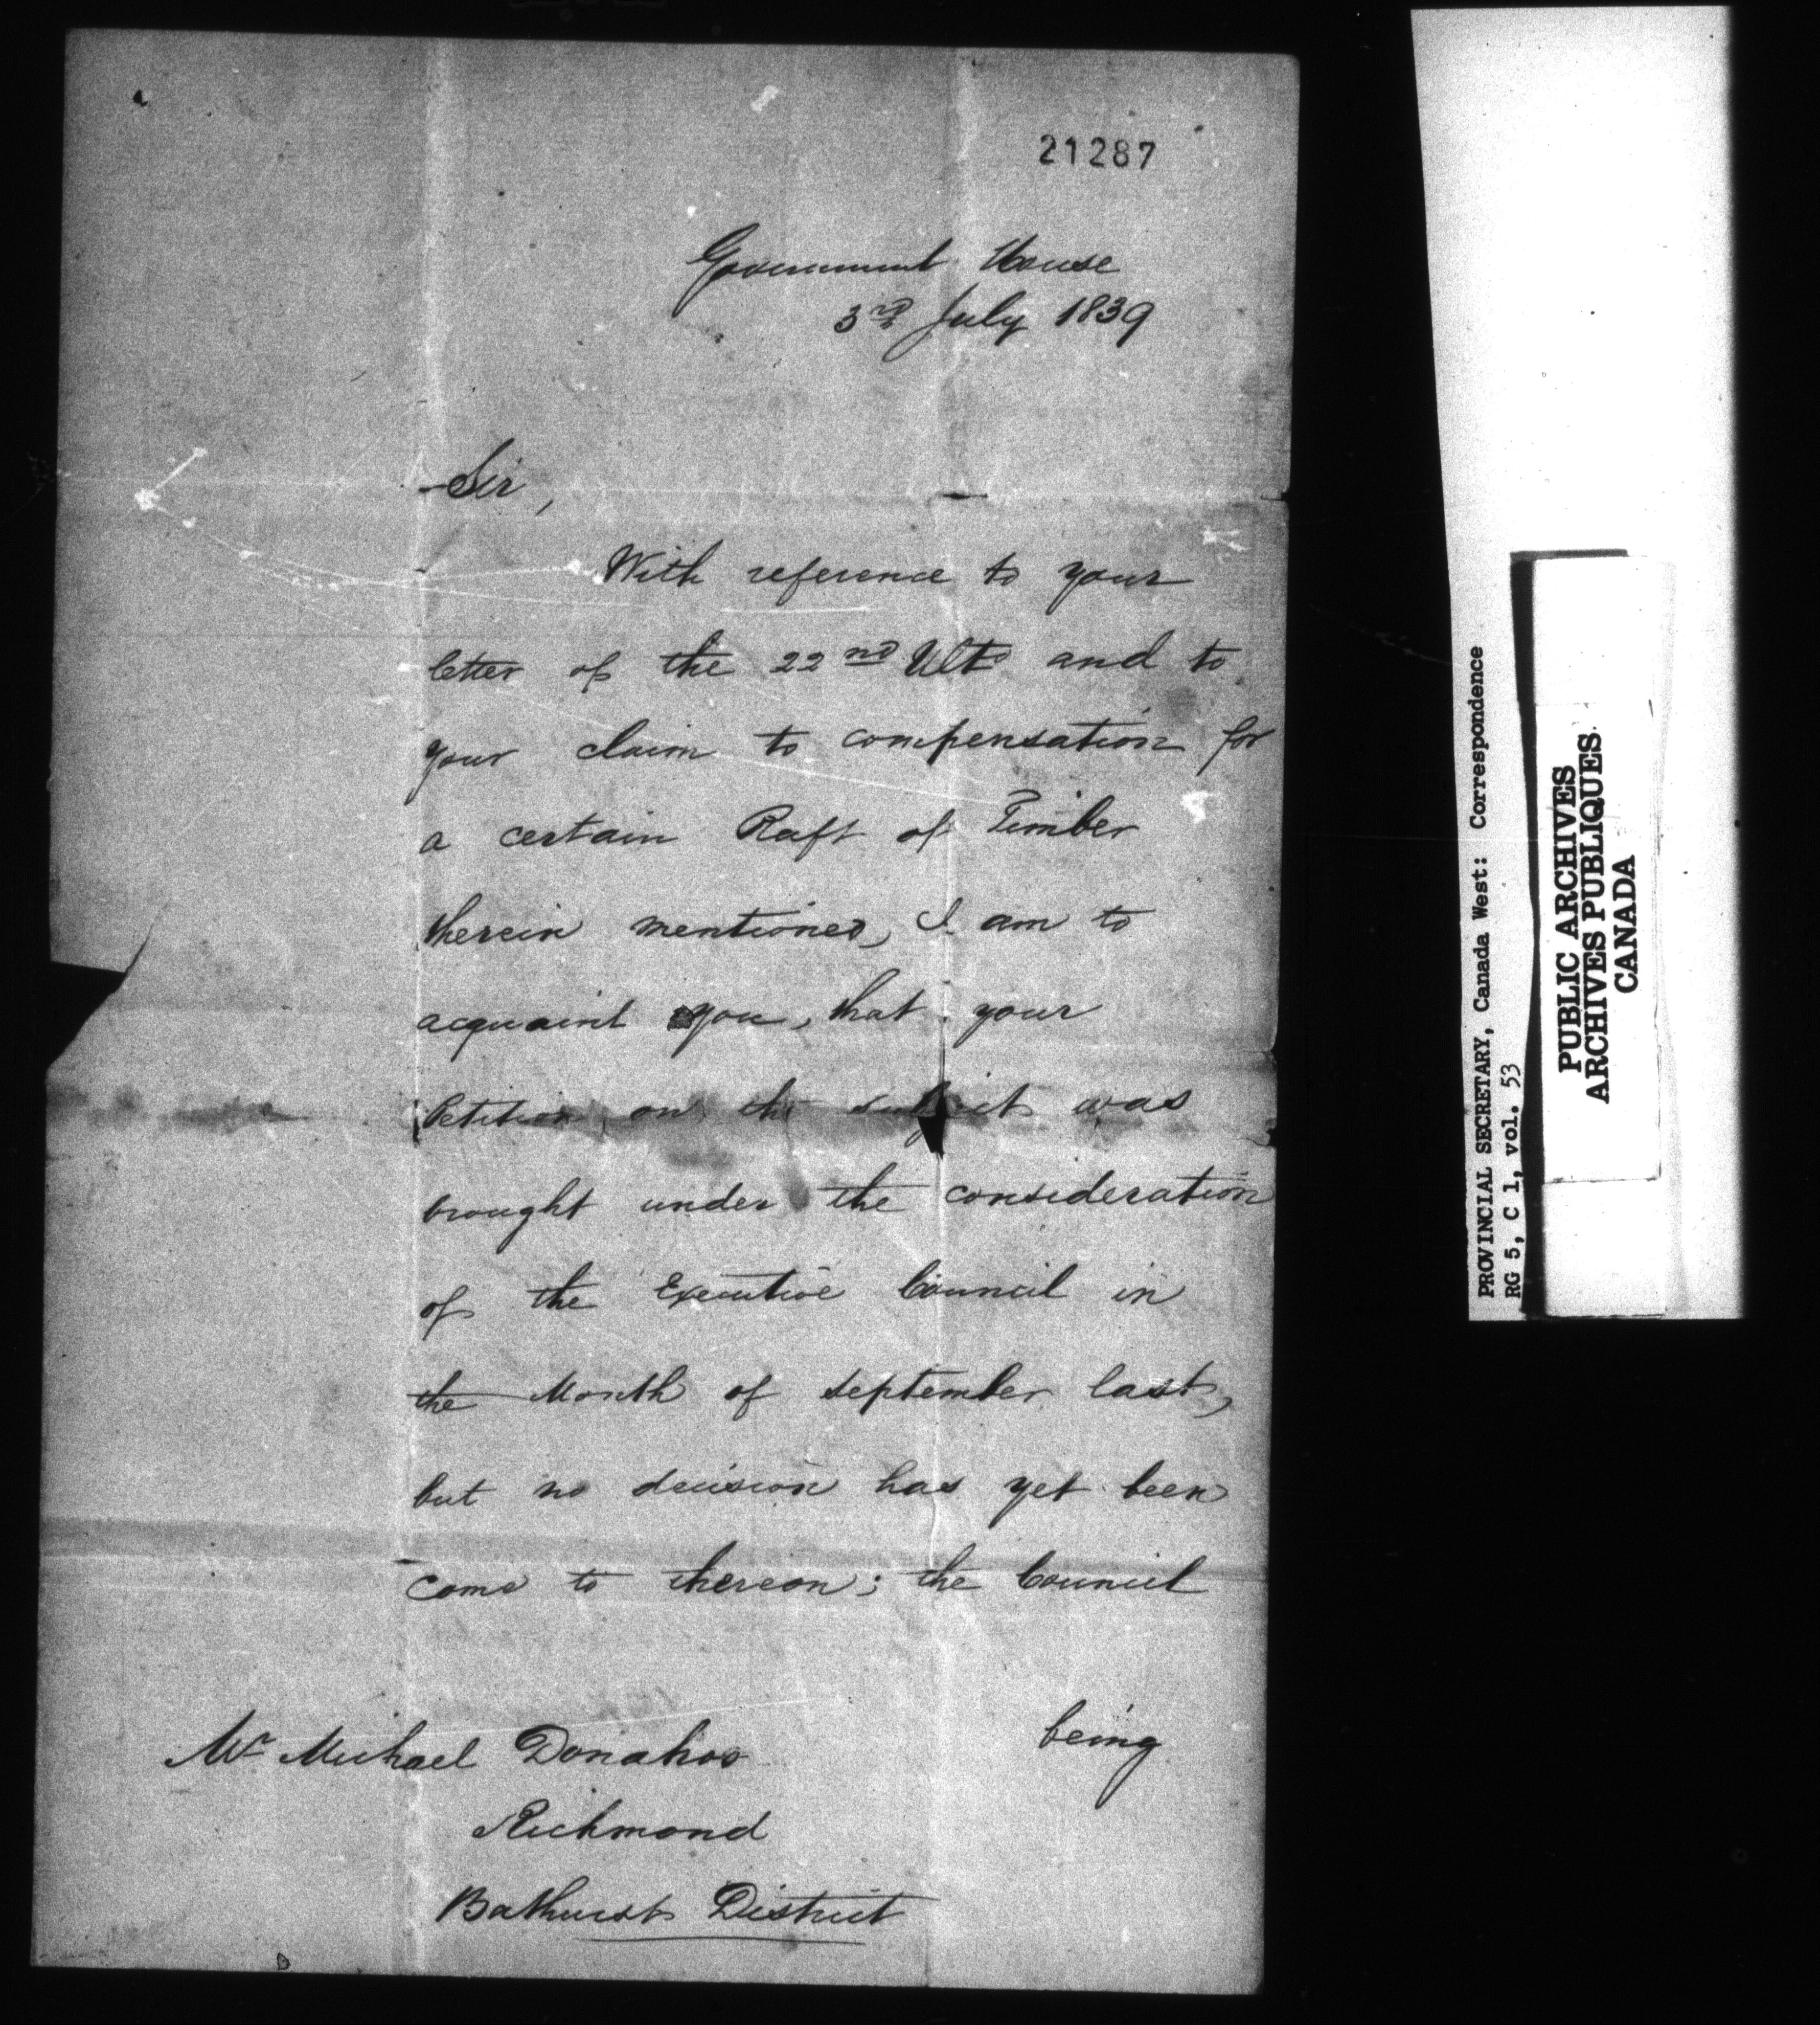 21287
Government House
3rd July 1839
Sir,
With reference to your
letter of the 22nd Ulto and to
your claim to compensation for
a certain Raft of Timber
therein mentioned, I am to
acquaint you, that your
Petition on the subject was
brought under the consideration
of the Executive Council in
the Month of September last,
but no decision has yet been
come to thereon; the Council
being
Mr Michael Donahoo
Richmond
Bathurst District
PROVINCIAL SECRETARY, Canada West: Correspondence
RG 5, C 1, vol. 53
PUBLIC ARCHIVES
ARCHIVES PUBLIQUES
CANADA